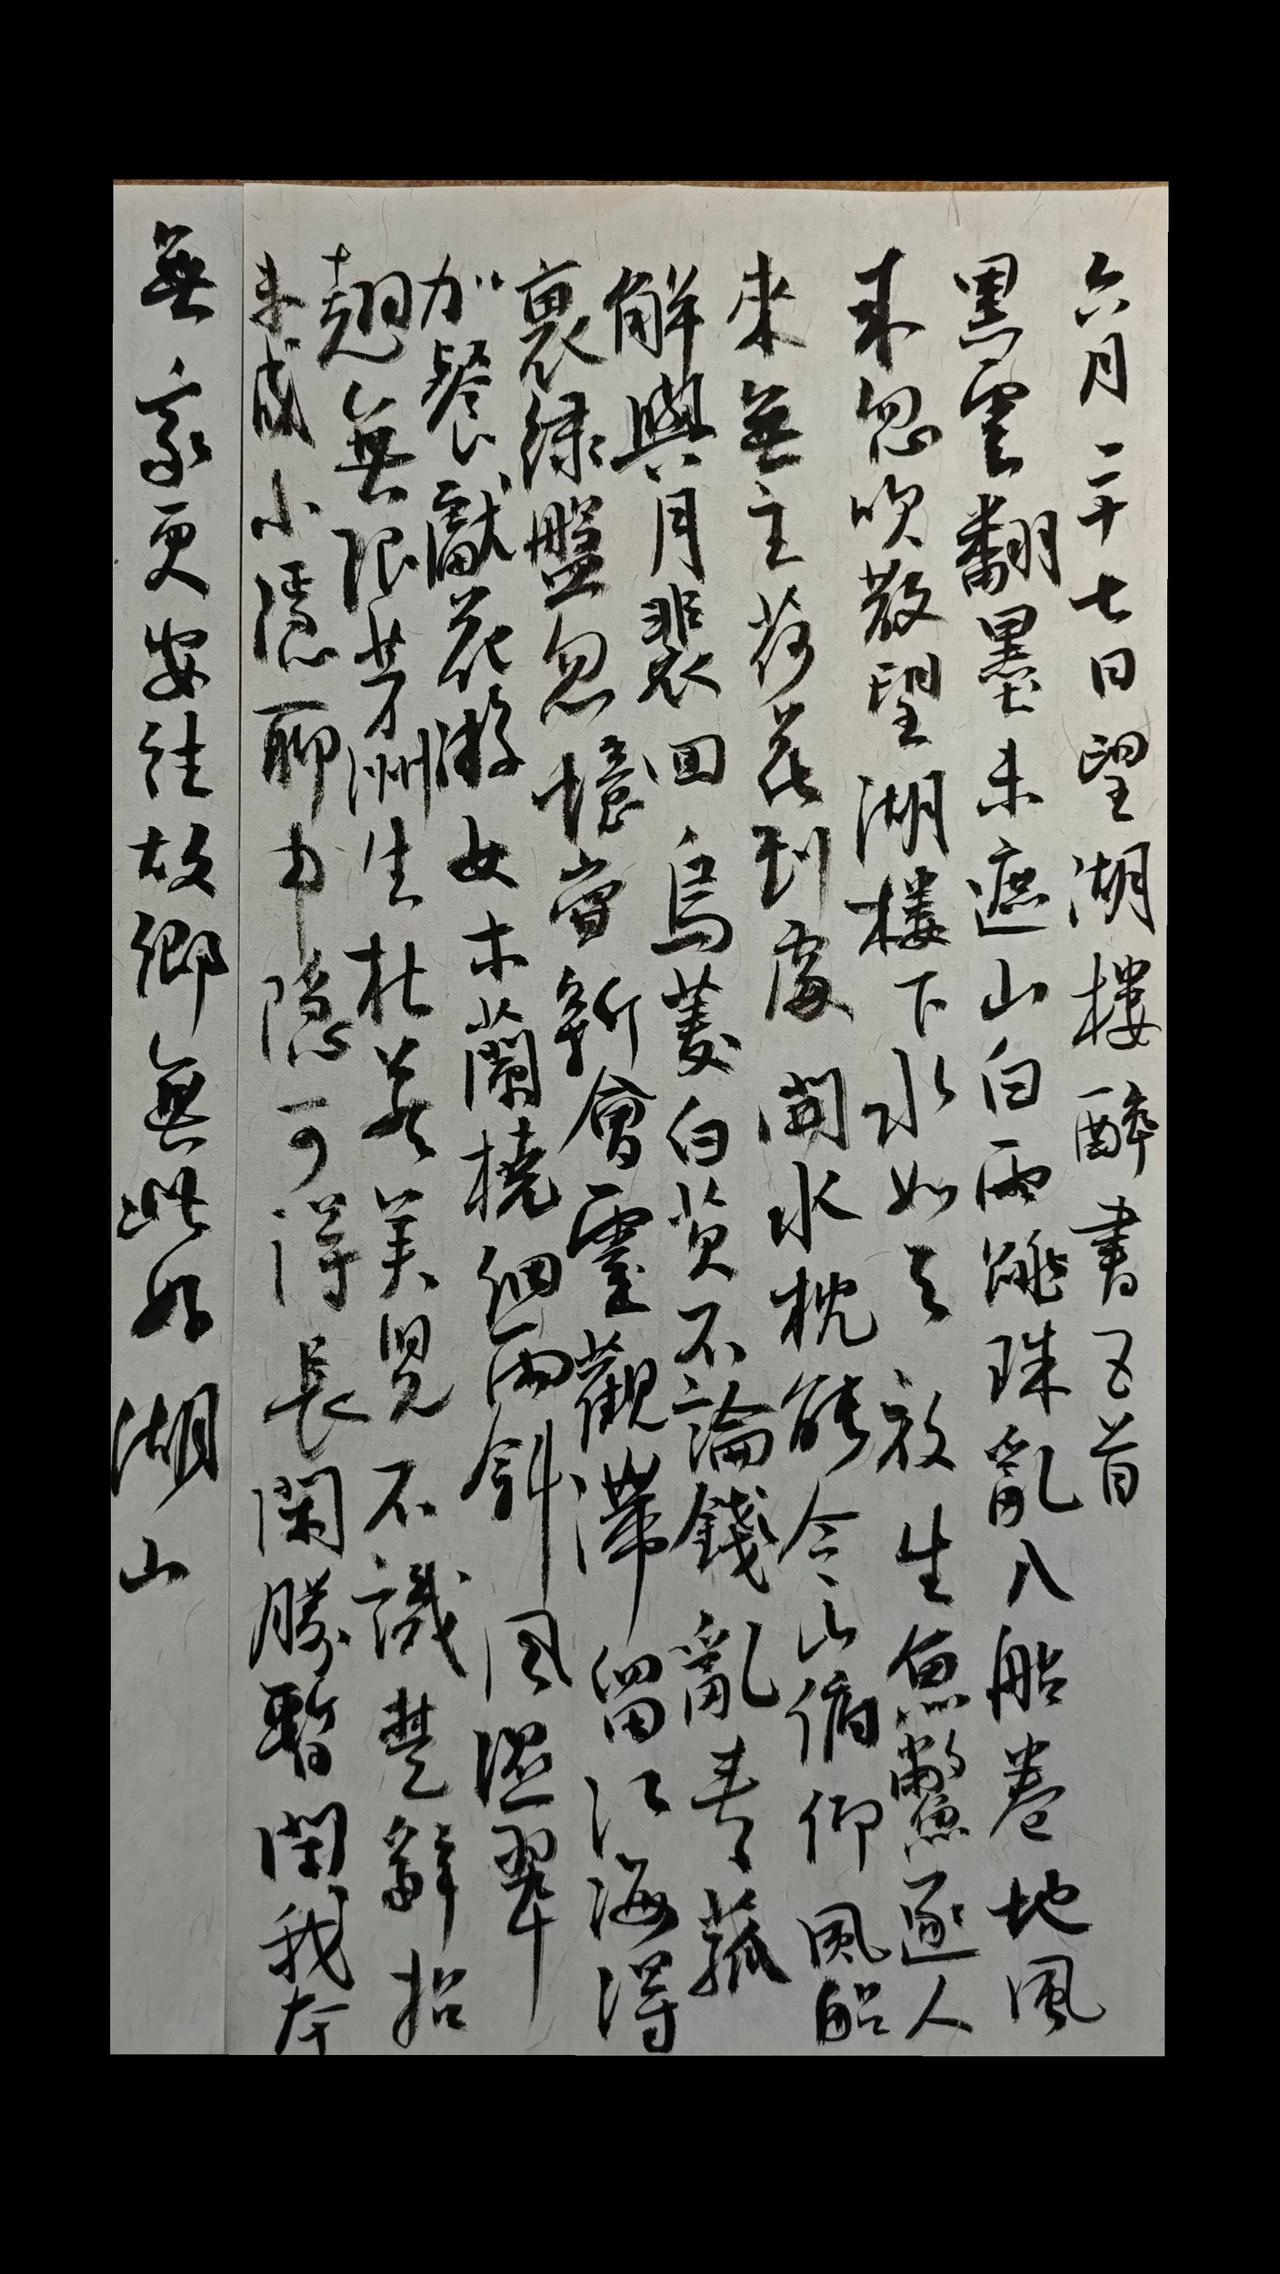 六月二十七日望湖樓醉書五首
黑雲翻墨未遮山白雨跳珠亂入船卷地風
来忽吹散望湖樓下水如天放生魚鱉逐人
來無主荷花到處開水枕能令山俯仰風船
解與月裴回烏菱白芡不論錢亂青菰
裹綠盤忽憶嘗新會靈觀滯留江海得
加餐獻花游女木蘭橈細雨斜風溼翠
翹無限芳洲生杜若吴兒不識楚辭招
未成小隱聊中隱可得長閑勝暫閑我本
無家更安往故鄉無此好湖山